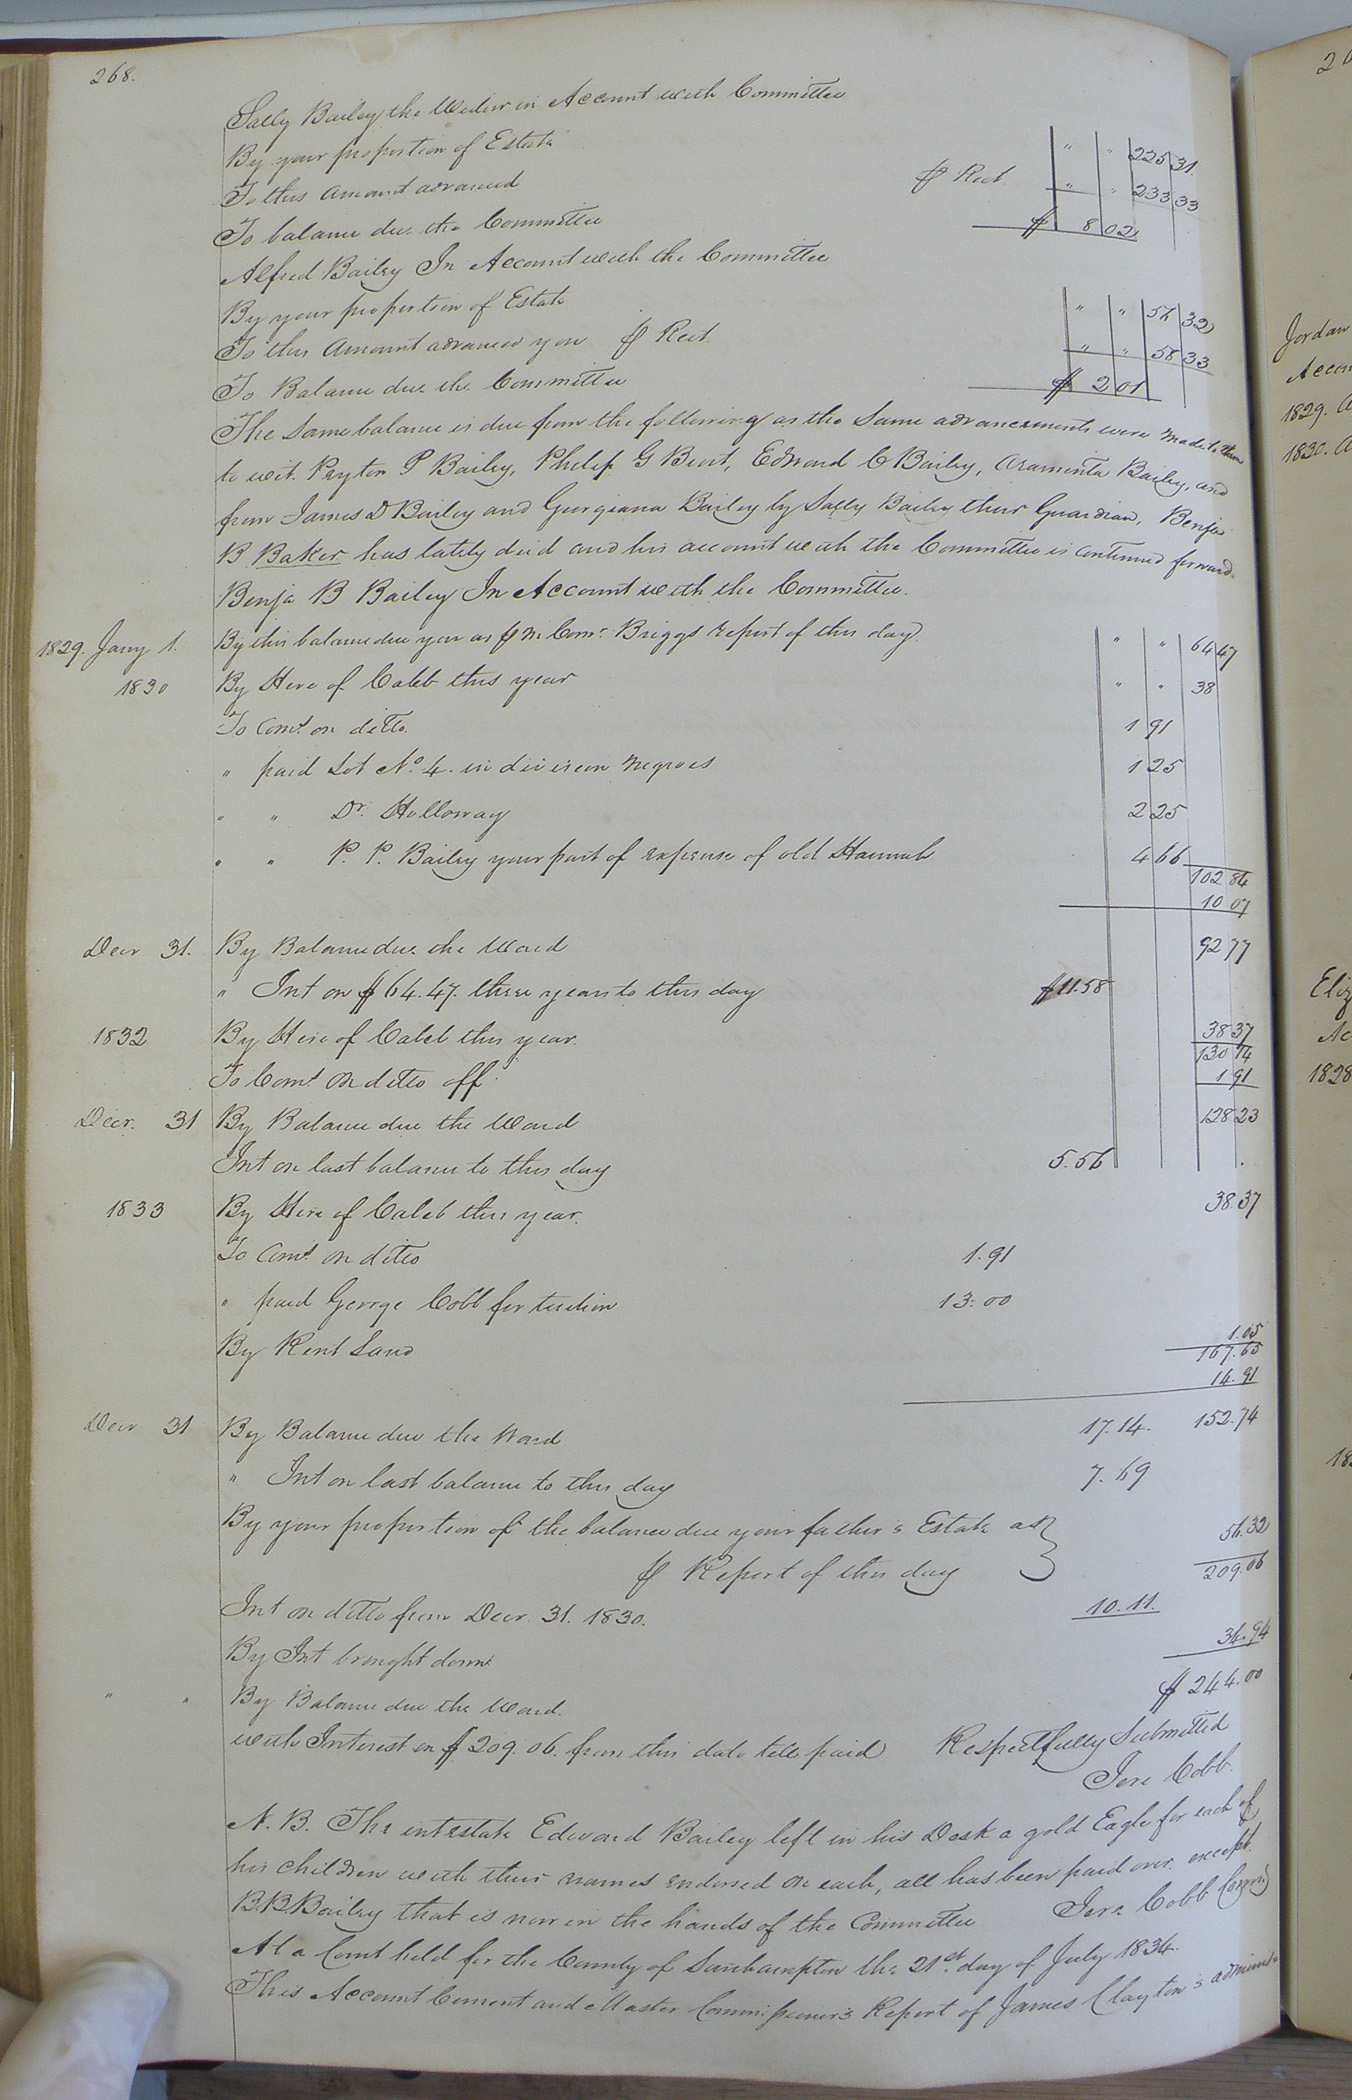 268.
Sally Bailey the Widow in Account with Committee
By your proportion of Estate " " 225 31.
To this amount advanced ⅌ Rect " " 233 33
To balance due the Committee $ 8 02
Alfred Bailey In Account with the Committee
By your proportion of Estate " " 56 32
To this Amount advanced you ⅌ Rect. " " 58 33
To Balance due the Committee $ 2 01
The Same balance is due from the following as the Same advancements were made to them
to wit. Peyton P Bailey, Philip G Bunt, Edward C Bailey, Araminta Bailey, and
from James D Bailey and Georgiana Bailey by Sally Bailey their Guardian, Benja
B Baker has lately died and his account with the Committee is continued forward.
Benja B Bailey In Account with the Committee.
1829. Jany 1. By this balance due you as ⅌ M. Comr. Briggs report of this day. " " 64 47
1830 By Hire of Caleb this year " " 38
To Comt. on ditto. 1 91
" paid Lot No. 4. in division Negroes 1 25
" " Dr. Holloway 2 25
" " P. P. Bailey your part of expense of old Hannah 4 66
102 84
10 07
Decr 31. By Balance due the Ward 92 77
" Int on $64.47. three years to this day $11.58
1832 By Hire of Caleb this year. 38 37
130 74
To Comt. on ditto off. 1 91
Decr. 31 By Balance due the Ward 128 23
Int on last balance to this day 5.56
1833 By Hire of Caleb this year. 38.37
To Comt on ditto 1.91
" paid George Cobb for tuition 13.00
By Rent Land 1.05
167.65
14.91
Decr 31 By Balance due the Ward 17.14. 152.74
" Int on last balance to this day 7.69
By your proportion of the balance due your father's Estate as } 56.32
⅌ Report of this day 209.06
Int on ditto from Decr. 31. 1830. 10.11.
By Int brought down 34.94
" " By Balance due the Ward. $ 244.00
with Interest on $ 209.06. from this date till paid Respectfully Submitted
Jere Cobb.
N. B. The intestate Edward Bailey left in his Desk a gold Eagle for each of
his children with their names endorsed on each, all has been paid over except
B.B.Bailey that is now in the hands of the Committee Jere Cobb Comr
At a Court held for the County of Southampton the 21st. day of July 1834.
This Account Current and Master Commissioner's Report of James Clayton's
Jordan
Accou
1829.
1830.
Eliz
Ac
1828